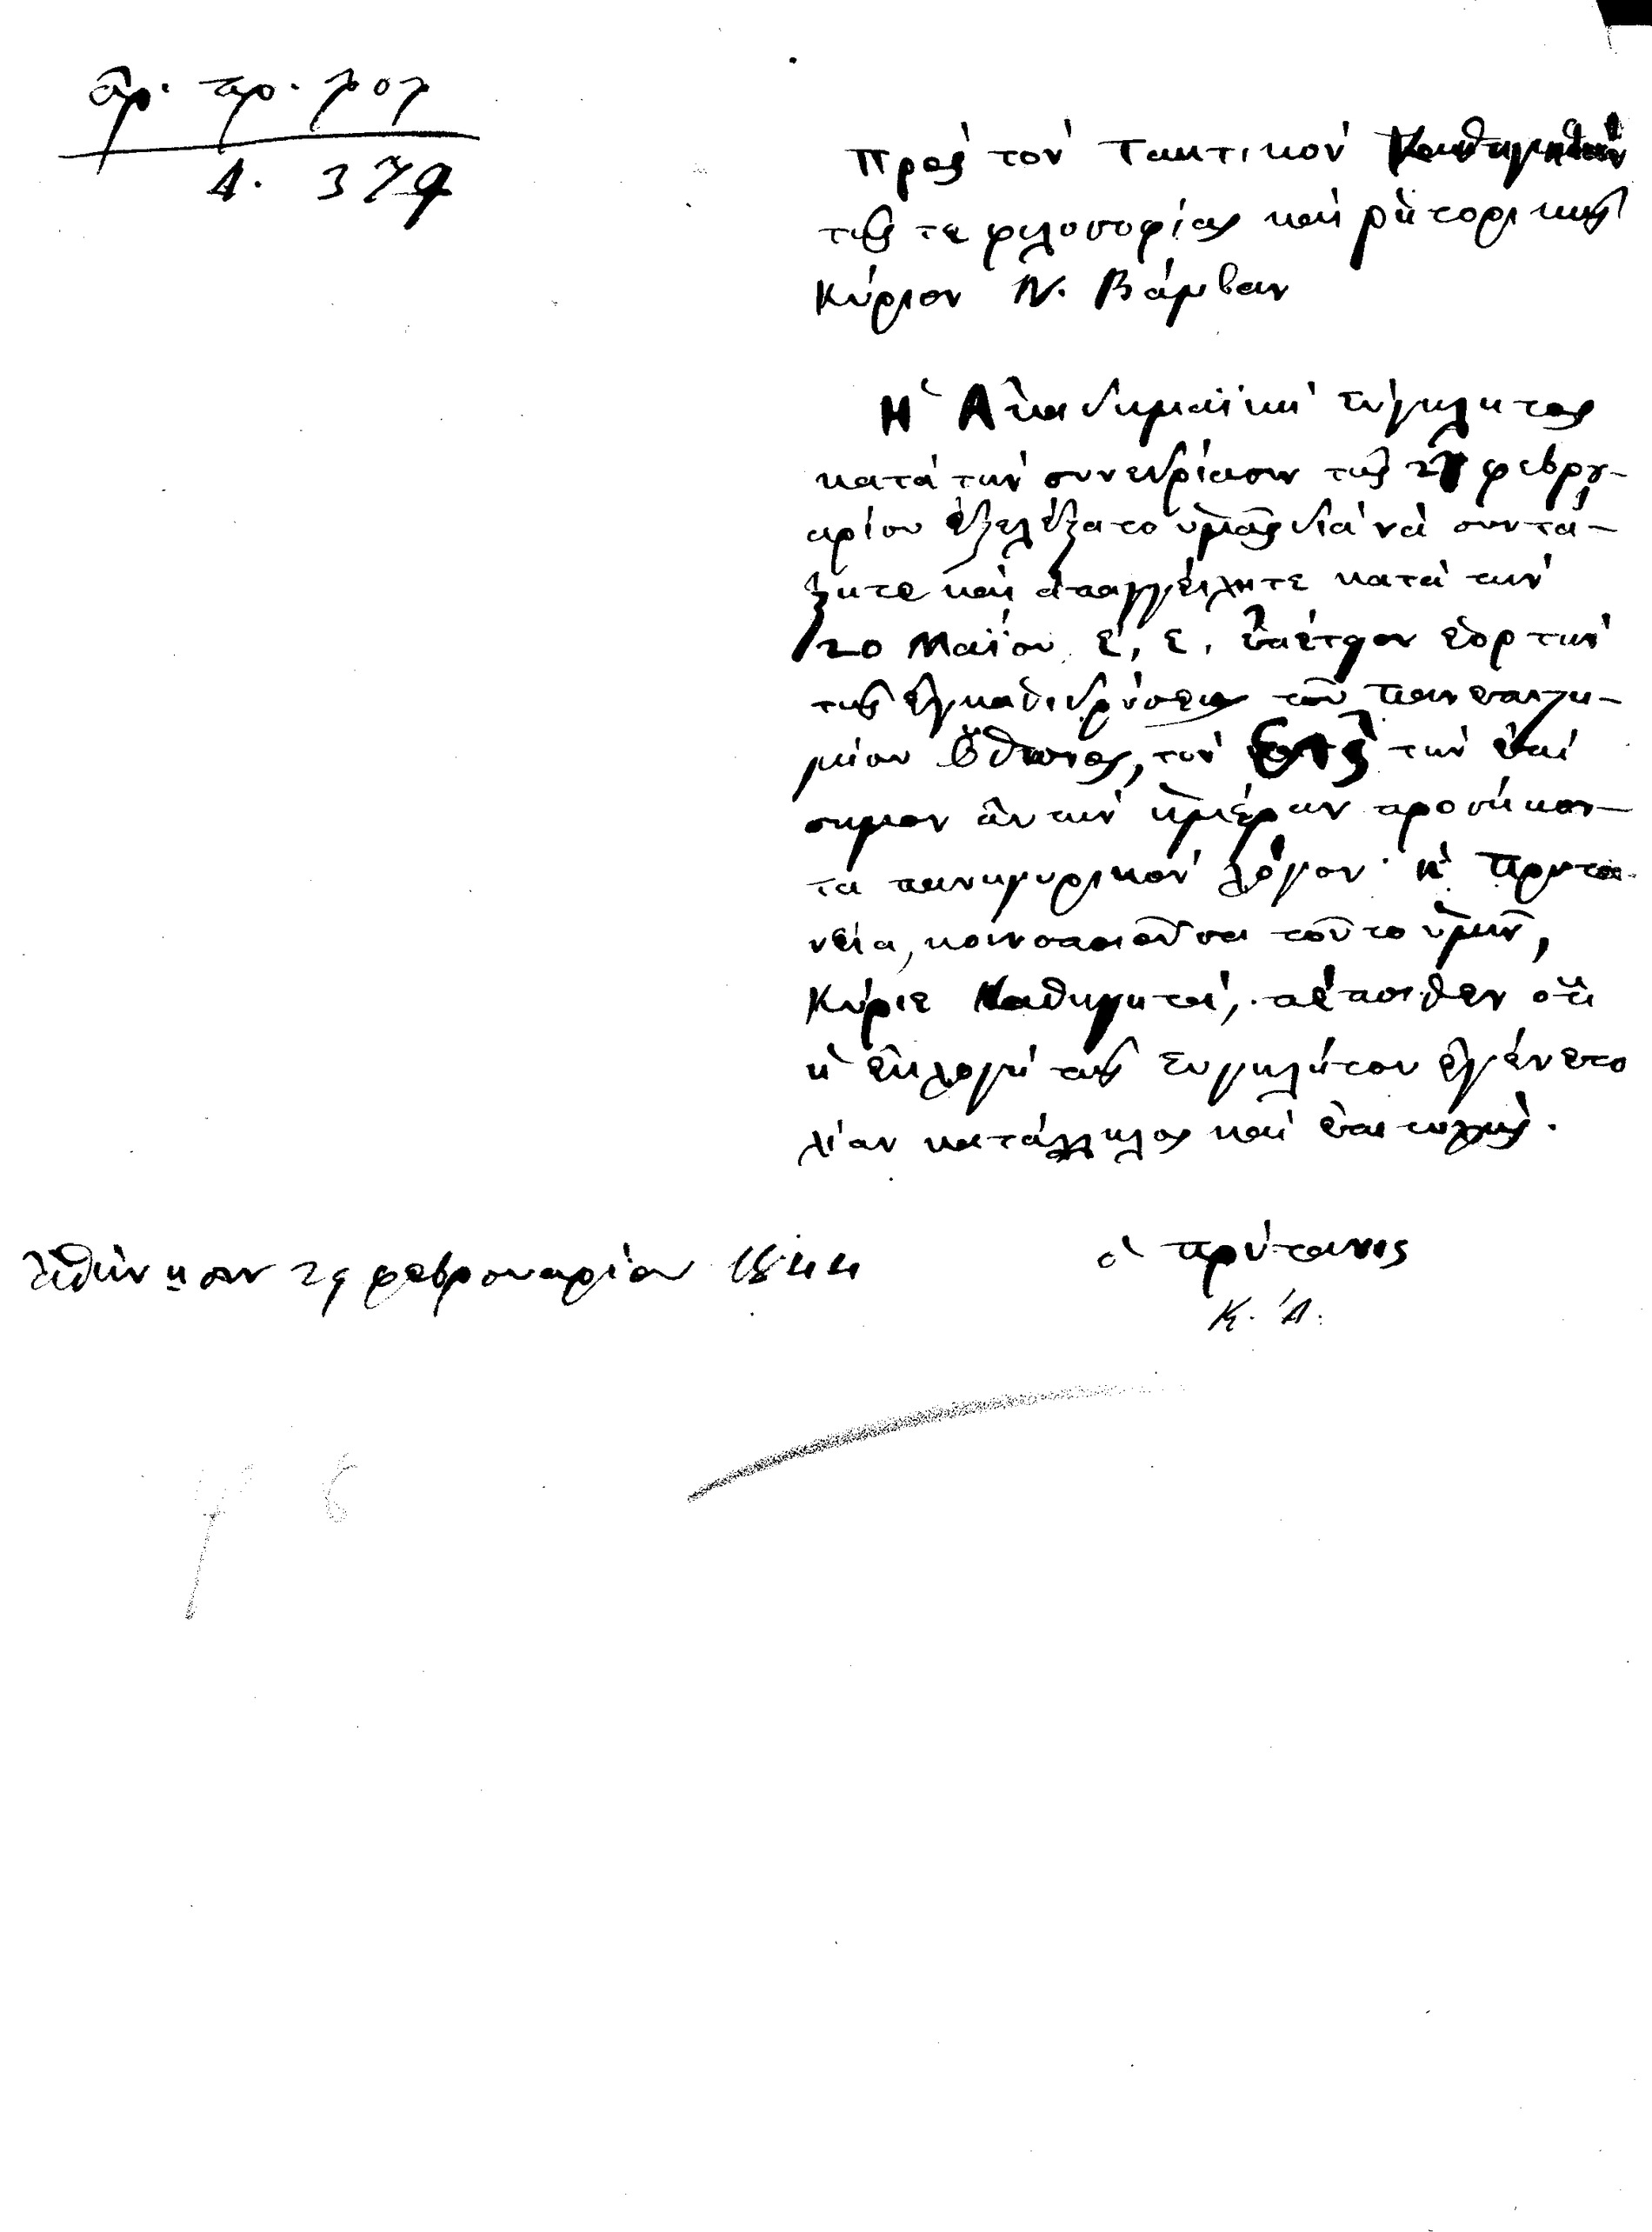 ἀρ. πρ. 707
Δ. 379
Πρὸς τὸν Τακτικὸν Καθηγητὴν
τῆς τε φιλοσοφίας καὶ ῥητορικῆς
Κύριον Ν. Βάμβαν
Ἡ Ἀκαδημαϊκὴ Σύγκλητος
κατὰ τὴν συνεδρίασιν τῆς φεβρου-
αρίου ἐξελέξατο ὑμᾶς διὰ νὰ συντά-
ξητε καὶ ἀπαγγείλητε κατὰ τὴν
20 Μαΐου ἐ. ἔ. ἐπέτειον ἑορτὴν
τῆς ἐγκαθιδρύσεως τοῦ Πανεπιστη-
μίου Ὄθωνος, τὸν εἰς τὴν ἐπί
σημον αὐτὴν ἡμέραν προσήκον-
τα πανηγυρικὸν λόγον· ἡ Πρυτα-
νεία, κοινοποιοῦσα τοῦτο ὑμῖν,
Κύριε Καθηγητά, πέποιθεν ὅτι
ἡ ἐκλογὴ τῆς Συγκλήτου ἐγένετο
λίαν κατάλληλος καὶ ἐπιτυχής.
Ἀθήνησιν 29 φεβρουαρίου 1844
ὁ πρύτανις
Κ. Ἀ.